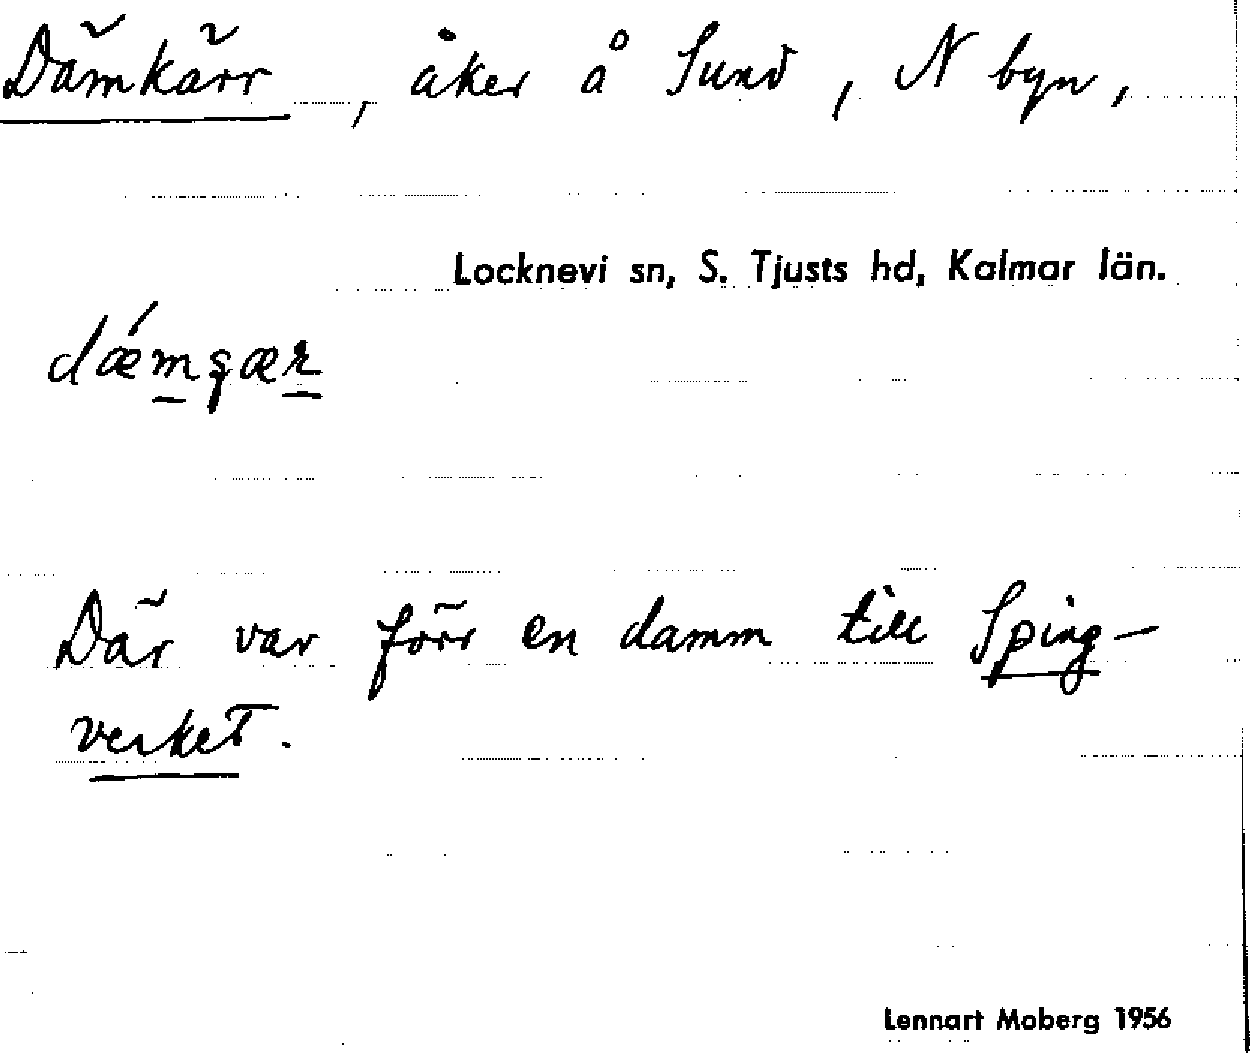 Dämkärr, åker å Sund, N byn,
Locknevi sn, S. Tjusts hd, Kalmar län.
Där var förr en damm till Sping-
verket.
Lennart Moberg 1956